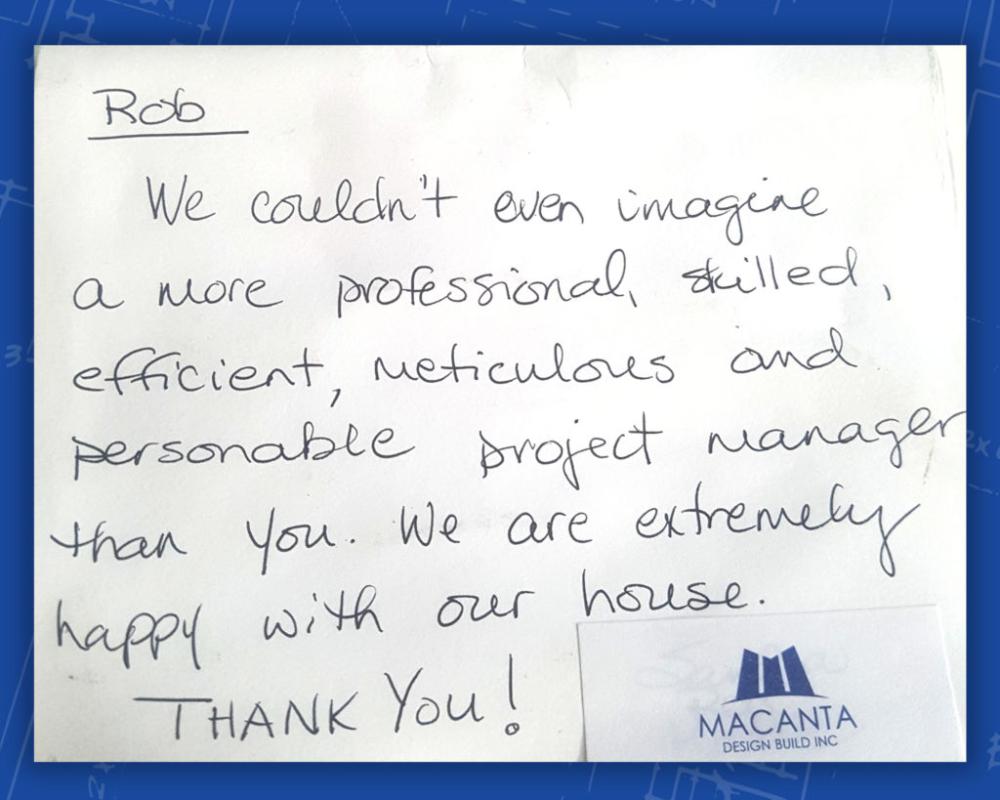 Rob
We couldn't even imagine
a more professional, skilled,
efficient, meticulous and
personable project manager
than you. We are extremely
happy with our house.
THANK YOU!
MACANTA
DESIGN BUILD INC